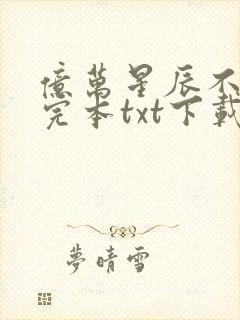 億萬星辰不
完本txt下載
夢晴雪